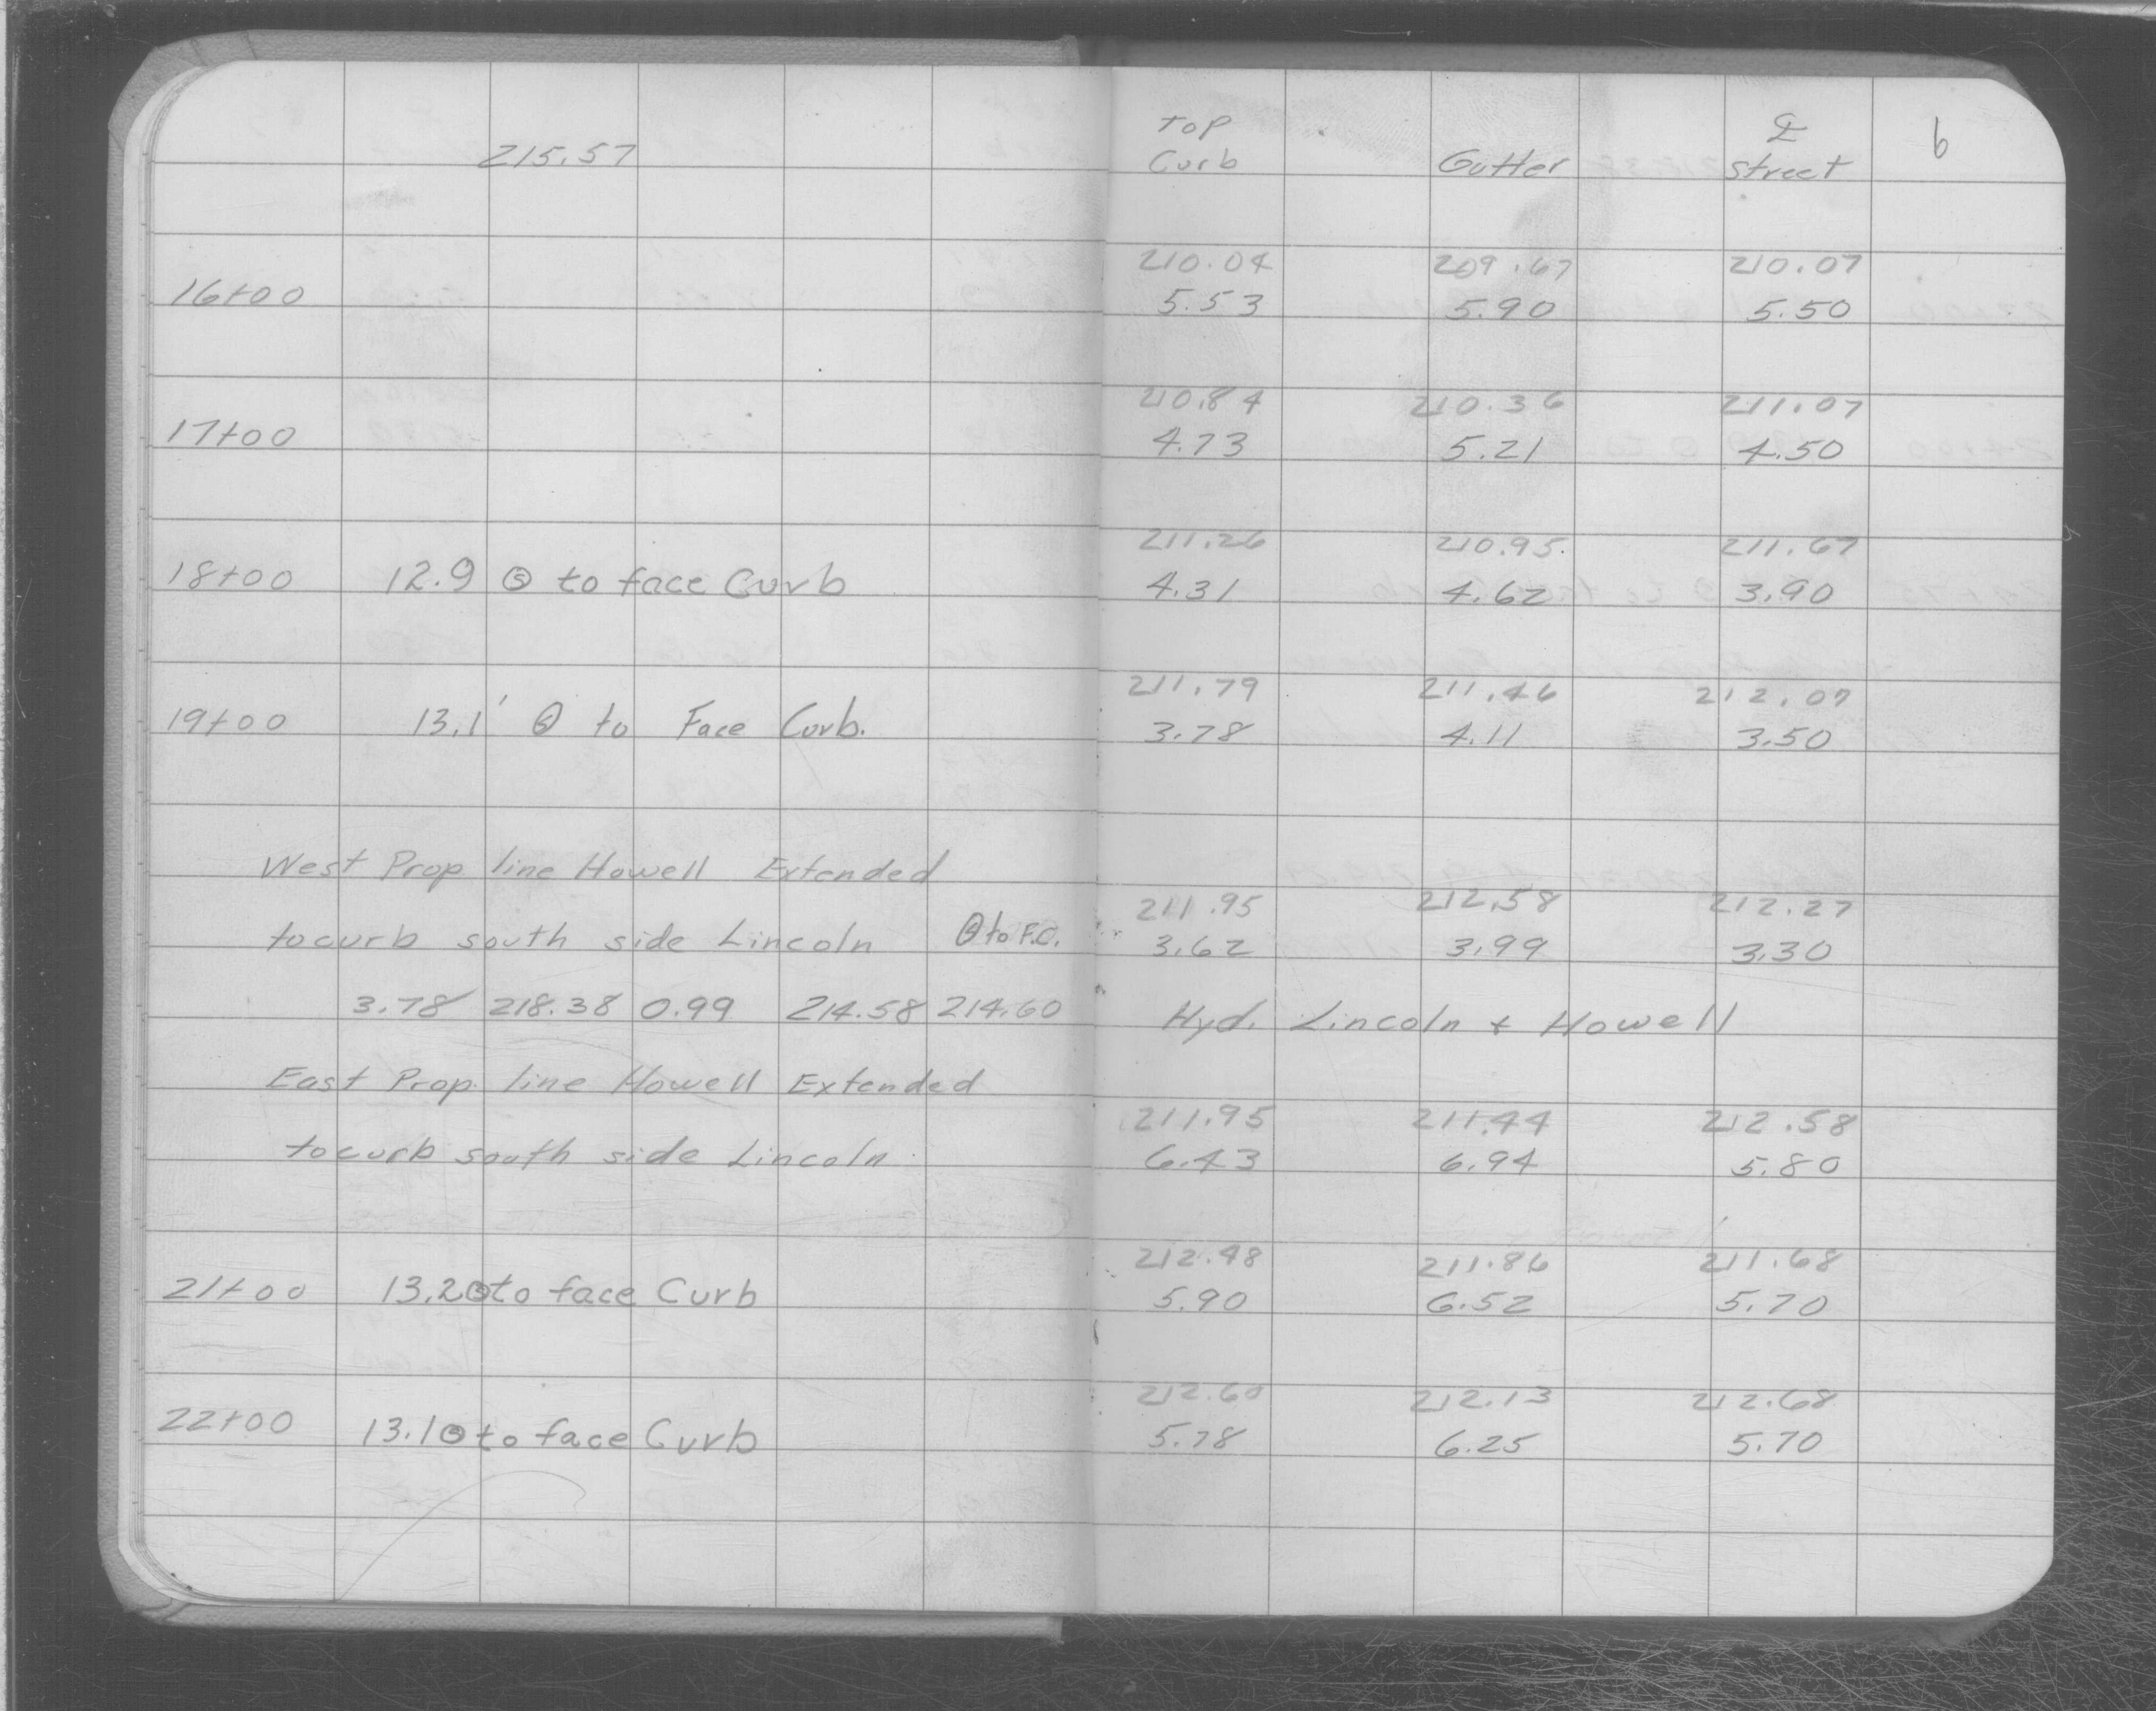 Top ℄ 6
215.57 Curb Gutter Street
210.04 209.67 210.07
16+00 5.53 5.90 5.50
210.84 210.36 211.07
17+00 4.73 5.21 4.50
211.26 210.95 211.67
18+00 12.9 to face Curb 4.31 4.62 3.90
211.79 211.46 212.07
19+00 13.1' to Face Curb. 3.78 4.11 3.50
West Prop line Howell Extended
211.95 212.58 212.27
to curb south side Lincoln to F.C. 3.62 3.99 3.30
3.78 218.38 0.99 214.58 214.60 Hyd. Lincoln + Howell
East Prop. line Howell Extended
211.95 211.44 212.58
to curb south side Lincoln 6.43 6.94 5.80
212.48 211.86 211.68
21+00 13.2 to face Curb 5.90 6.52 5.70
212.60 212.13 212.68
22+00 13.1 to face Curb 5.78 6.25 5.70